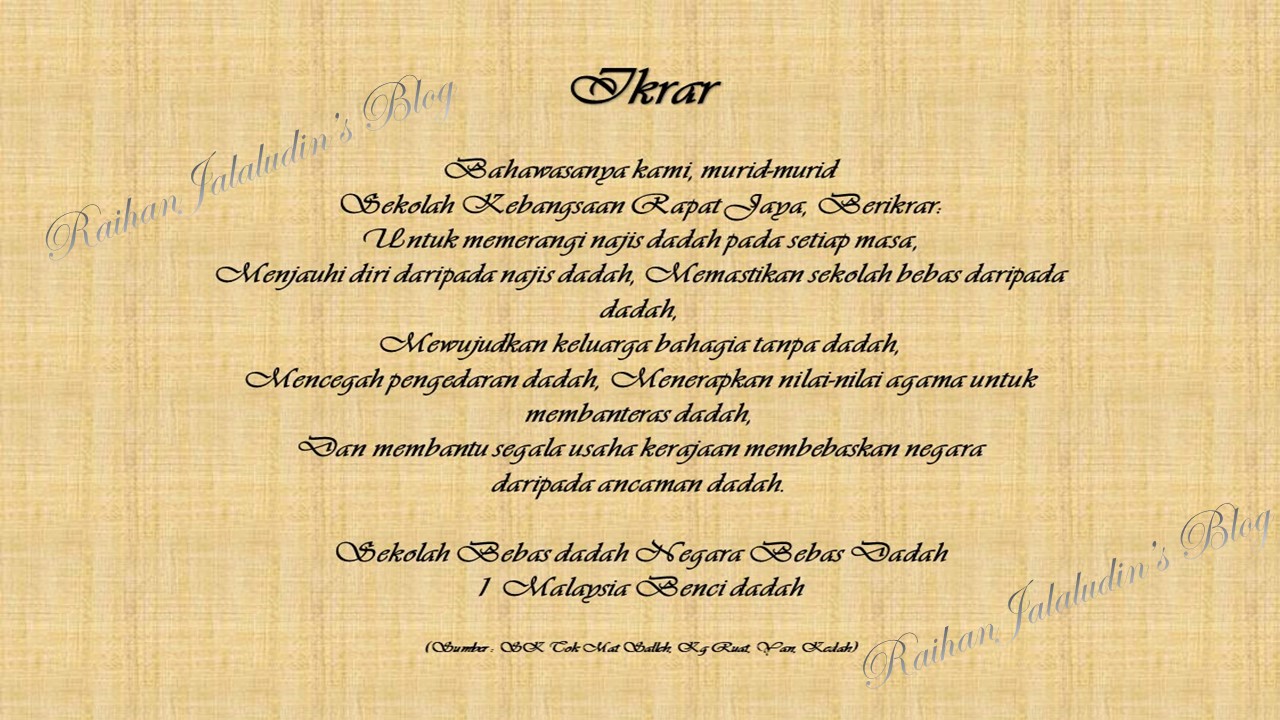 Ikrar
Raihan Jalaludin's Blog
Bahawasanya kami, murid-murid
Sekolah Kebangsaan Rapat Jaya, Berikrar:
Untuk memerangi najis dadah pada setiap masa,
Menjauhi diri daripada najis dadah, Memastikan sekolah bebas daripada
dadah,
Mewujudkan keluarga bahagia tanpa dadah,
Mencegah pengedaran dadah, Menerapkan nilai-nilai agama untuk
membanteras dadah,
Dan membantu segala usaha kerajaan membebaskan negara
daripada ancaman dadah.
Sekolah Bebas dadah Negara Bebas Dadah
1 Malaysia Benci dadah
(Sumber : SK Tok Mat Salleh, Kg Ruat, Yan, Kedah)
Raihan Jalaludin's Blog